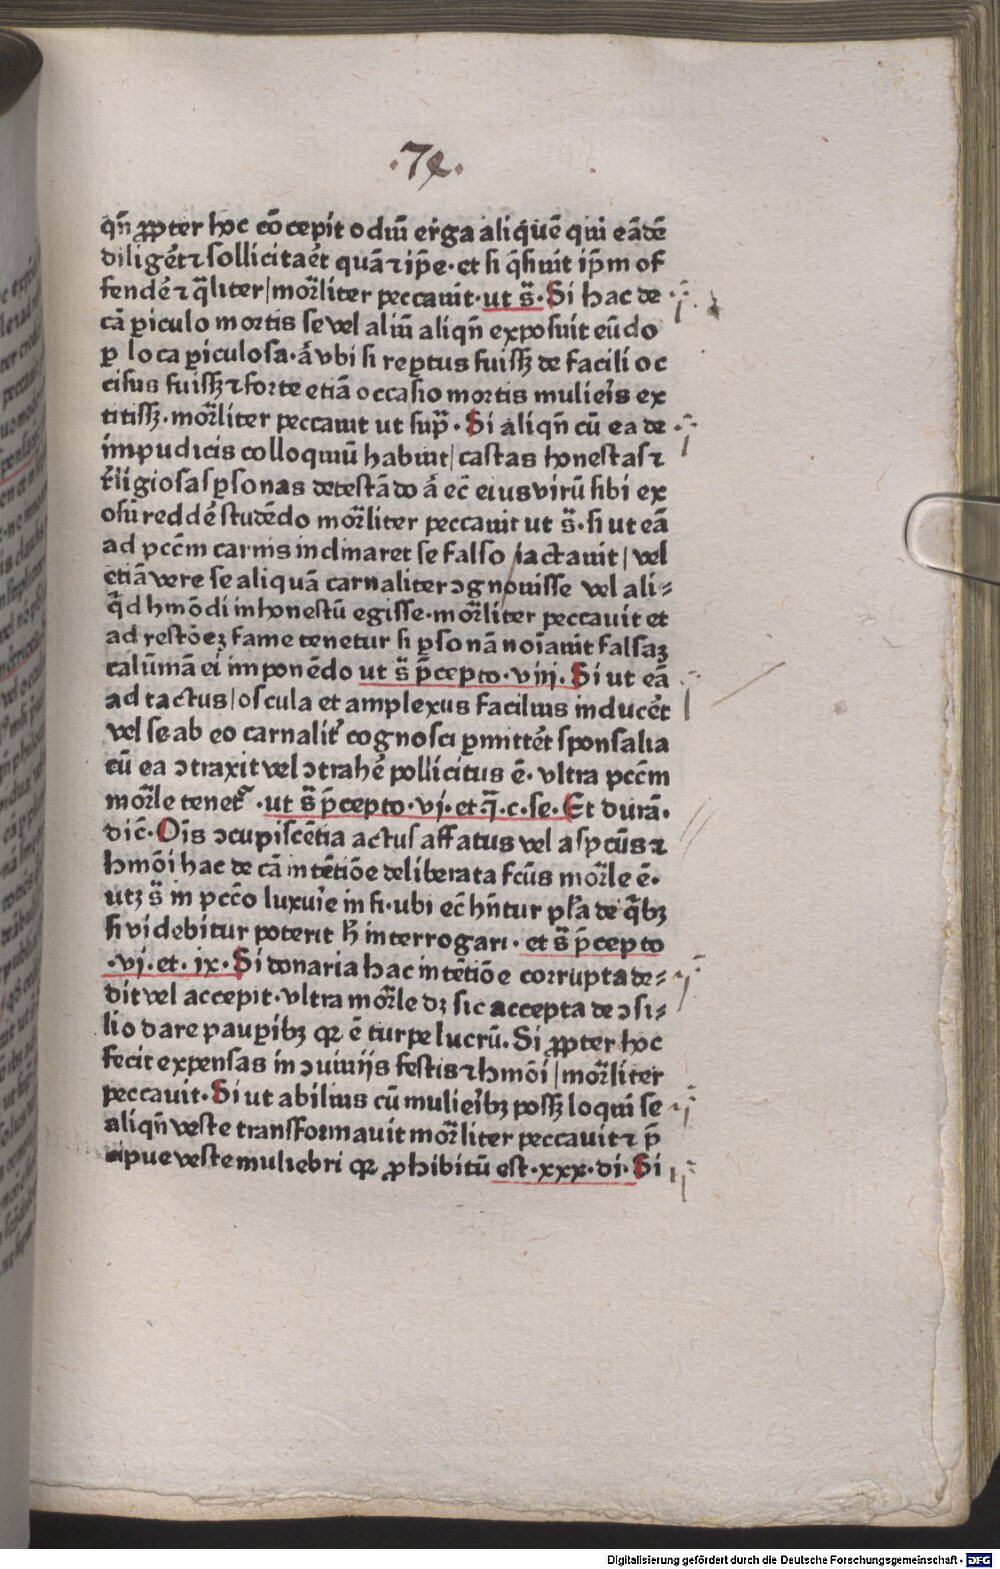 ·74·
qn̄ ꝓpter hoc cōcepit odiū erga aliquē qui eādē
diligēt ⁊ sollicitaēt quā ⁊ ip̄e · et si q̄siuit ip̄m of
fendē ⁊ q̄liter / mor̄liter peccauit · ut s̄ · Si hac de
cā ꝑiculo mortis se vel aliū aliqn̄ exposuit eūdo
ꝑ loca ꝑiculosa · ā vbi si reꝑtus fuissꝫ de facili oc
cisus fuissꝫ ⁊ forte etiā occasio mortis mulieīs ex
titissꝫ · mor̄liter peccauit ut sup̄ · Si aliqn̄ cū ea de
impudicis colloquiū habuit / castas honestas ⁊
r̄ligiosas ꝑsonas detestādo ā ec̄ eius virū sibi ex
osū reddē studēdo mor̄liter peccauit ut s̄ · si ut eā
ad pcc̄m carnis inclinaret se falso iactauit / vel
etiā vere se aliquā carnaliter ꝯgnouisse vel ali⸗
q̄d hmōdi inhonestū egisse · mor̄liter peccauit et
ad restōeꝫ fame tenetur si ꝑsonā noīauit falsaꝫ
calūniā ei imponēdo ut s̄ p̄cepto · viij · Si ut eā
ad tactus / oscula et amplexus facilius inducēt
vel se ab eo carnalit̄ cognosci ꝑmittēt sponsalia
cū ea ꝯtraxit vel ꝯtrahē pollicitus ē · vltra pcc̄m
mor̄le tenet̄ · ut s̄ p̄cepto · vj · et q̄ · c · se · Et durā ·
dic̄ · Oīs ꝯcupiscētia actus affatus vel aspcūs ⁊
hmōi hac de cā intētiōe deliberata fcūs mor̄le ē ·
utꝫ s̄ in pcc̄o luxuīe in fi · ubi ec̄ hn̄tur pl̄a de q̄bꝫ
si videbitur poterit h̄ interrogari · et s̄ p̄cepto
· vj · et · ix · Si donaria hac intētiōe corrupta de⸗
dit vel accepit · vltra mor̄le dꝫ sic accepta de ꝯsi⸗
lio dare pauꝑibꝫ qꝛ ē turpe lucrū. Si ꝓpter hoc
fecit expensas in ꝯuiuijs festis ⁊ hmōi / mor̄liter
peccauit · Si ut abilius cū mulieībꝫ possꝫ loqui se
aliqn̄ veste transformauit mor̄liter peccauit ⁊ p̄
cipue veste muliebri qꝛ ꝓhibitū est · xxx · di · Si
Digitalisierung gefördert durch die Deutsche Forschungsgemeinschaft · DFG